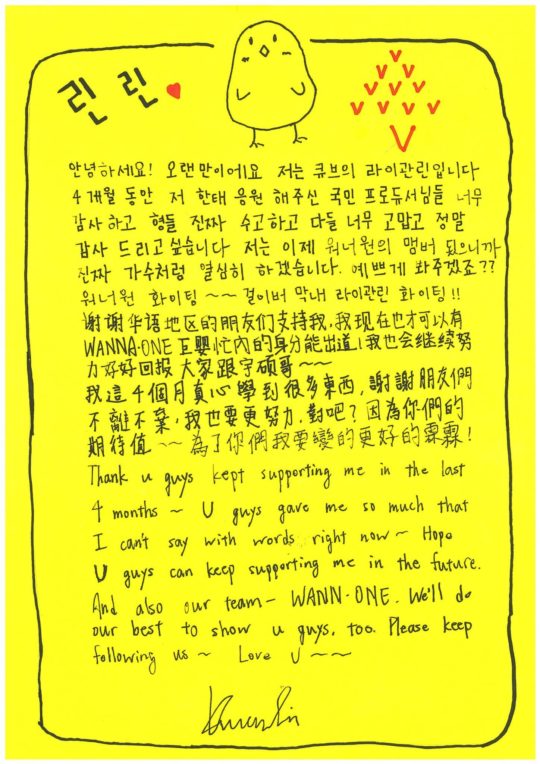 린린
안녕하세요! 오랜만이에요 저는 큐브의 라이관린입니다
4개월 동안 저 한태 응원 해주신 국민 프로듀서님들 너무
감사하고 형들 진짜 수고하고 다들 너무 고맙고 정말
감사 드리고싶습니다 저는 이제 워너원의 맴버 됬으니까
진짜 가수처럼 열심히 하겠습니다. 예쁘게 봐주겠죠??
워너원 화이팅 ~~ 걸이버 막내 라이관린 화이팅!!
谢谢华语地区的朋友们支持我,我现在也才可以有
WANNA·ONE 巨婴忙内的身分能出道!我也会继续努
力好好回报 大家跟宇硕哥~~
我這4個月真心學到很多東西,謝謝朋友們
不離不棄,我也要更努力,對吧?因為你們的
期待值 ~~ 為了你們我要變的更好的霖霖!
Thank u guys kept supporting me in the last
4 months ~ U guys gave me so much that
I can't say with words right now ~ Hope
U guys can keep supporting me in the future.
And also our team - WANN·ONE. We'll do
our best to show u guys, too. Please keep
following us ~ Love U ~~